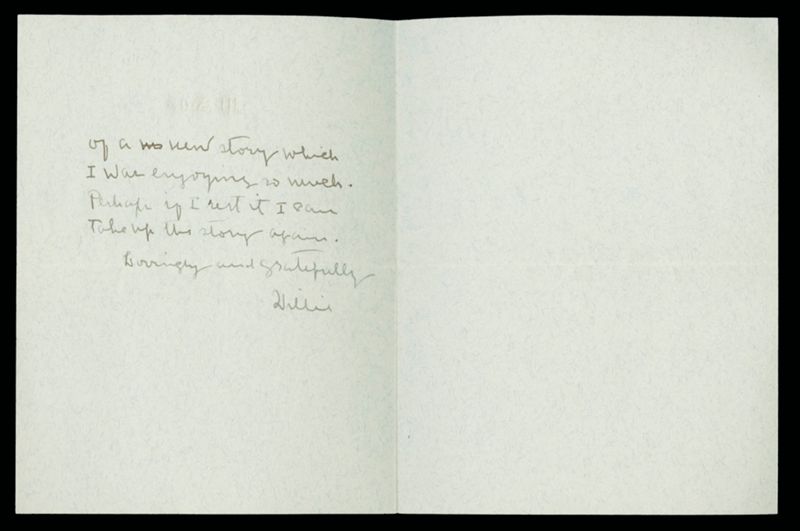 of a new story which
I was enjoying so much.
Perhaps if I rest it I can
Take up the story again.
Lovingly and gratefully
Willie